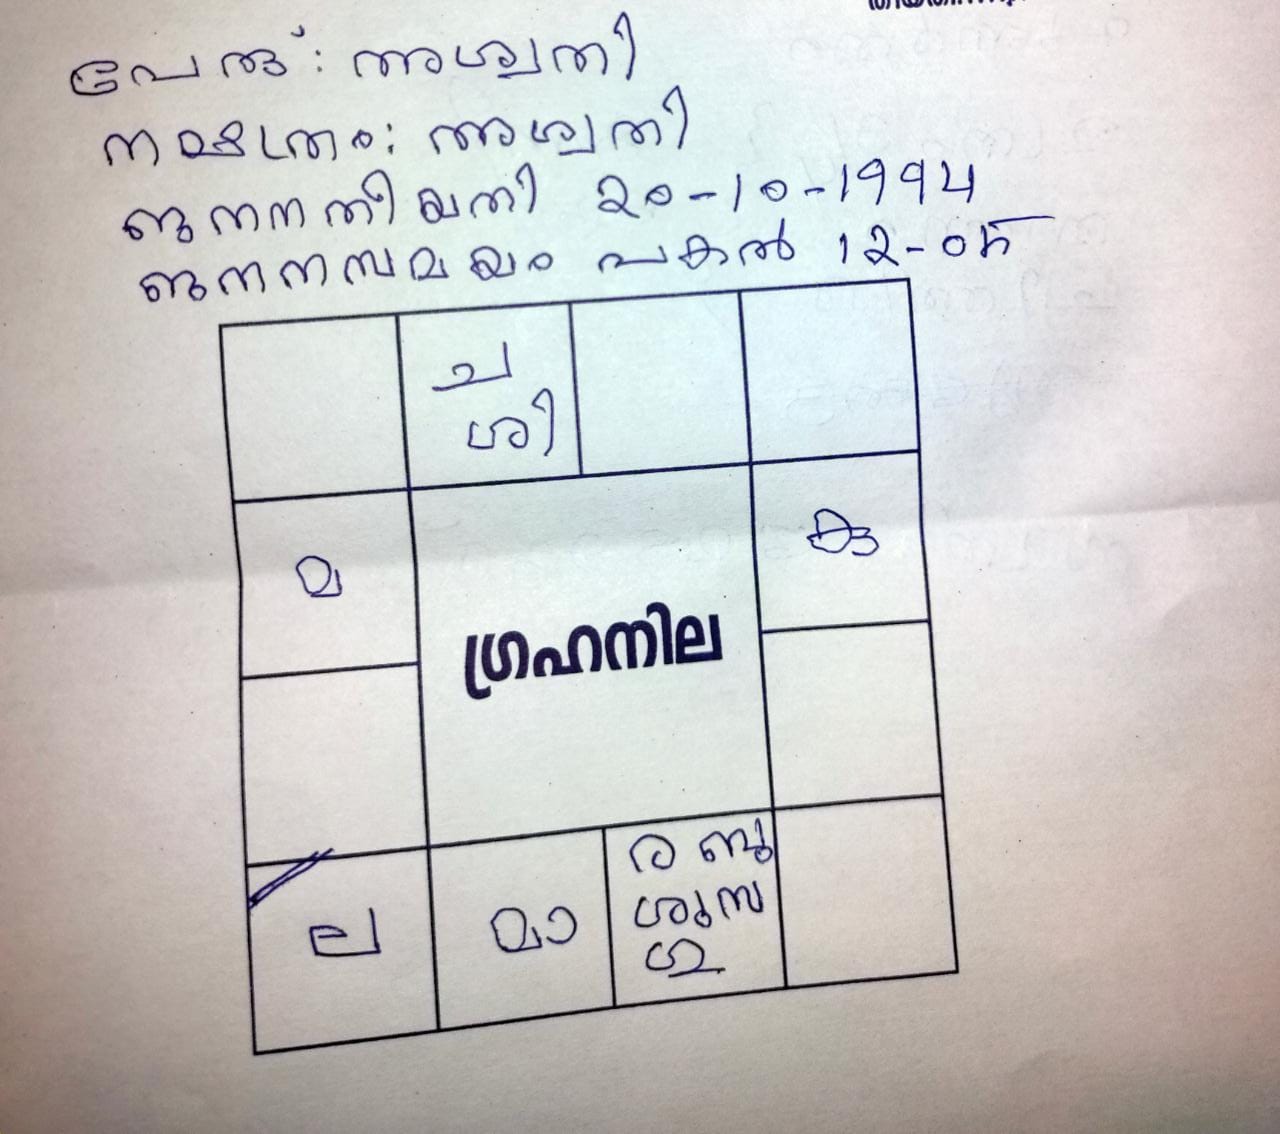 പേര്: അശ്വതി
നക്ഷത്രം: അശ്വതി
ജനനതീയതി 20-10-1994
ജനനസമയം പകൽ 12-05
ച
ശി
മ
കു
ഗ്രഹനില
ല
മാ
ര ബു
ശുസ